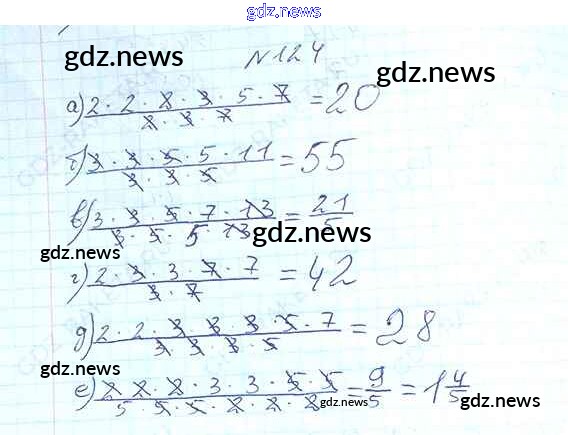 gdz.news
gdz.news
N124
gdz.news
а) 2·2·2·3·5·7 / 2·3·7 = 20
б) 3·3·5·5·11 / 3·3·5 = 55
в) 3·3·5·7·13 / 3·5·5·13 = 21/5
gdz.news
gdz.news
г) 2·3·3·7·7 / 3·7 = 42
д) 2·2·3·3·3·5·7 / 3·3·3·5 = 28
gdz.news
е) 2·2·2·3·3·5·5 / 5·5·5·2·2·2 = 9/5 = 1 4/5
gdz.news
gdz.news